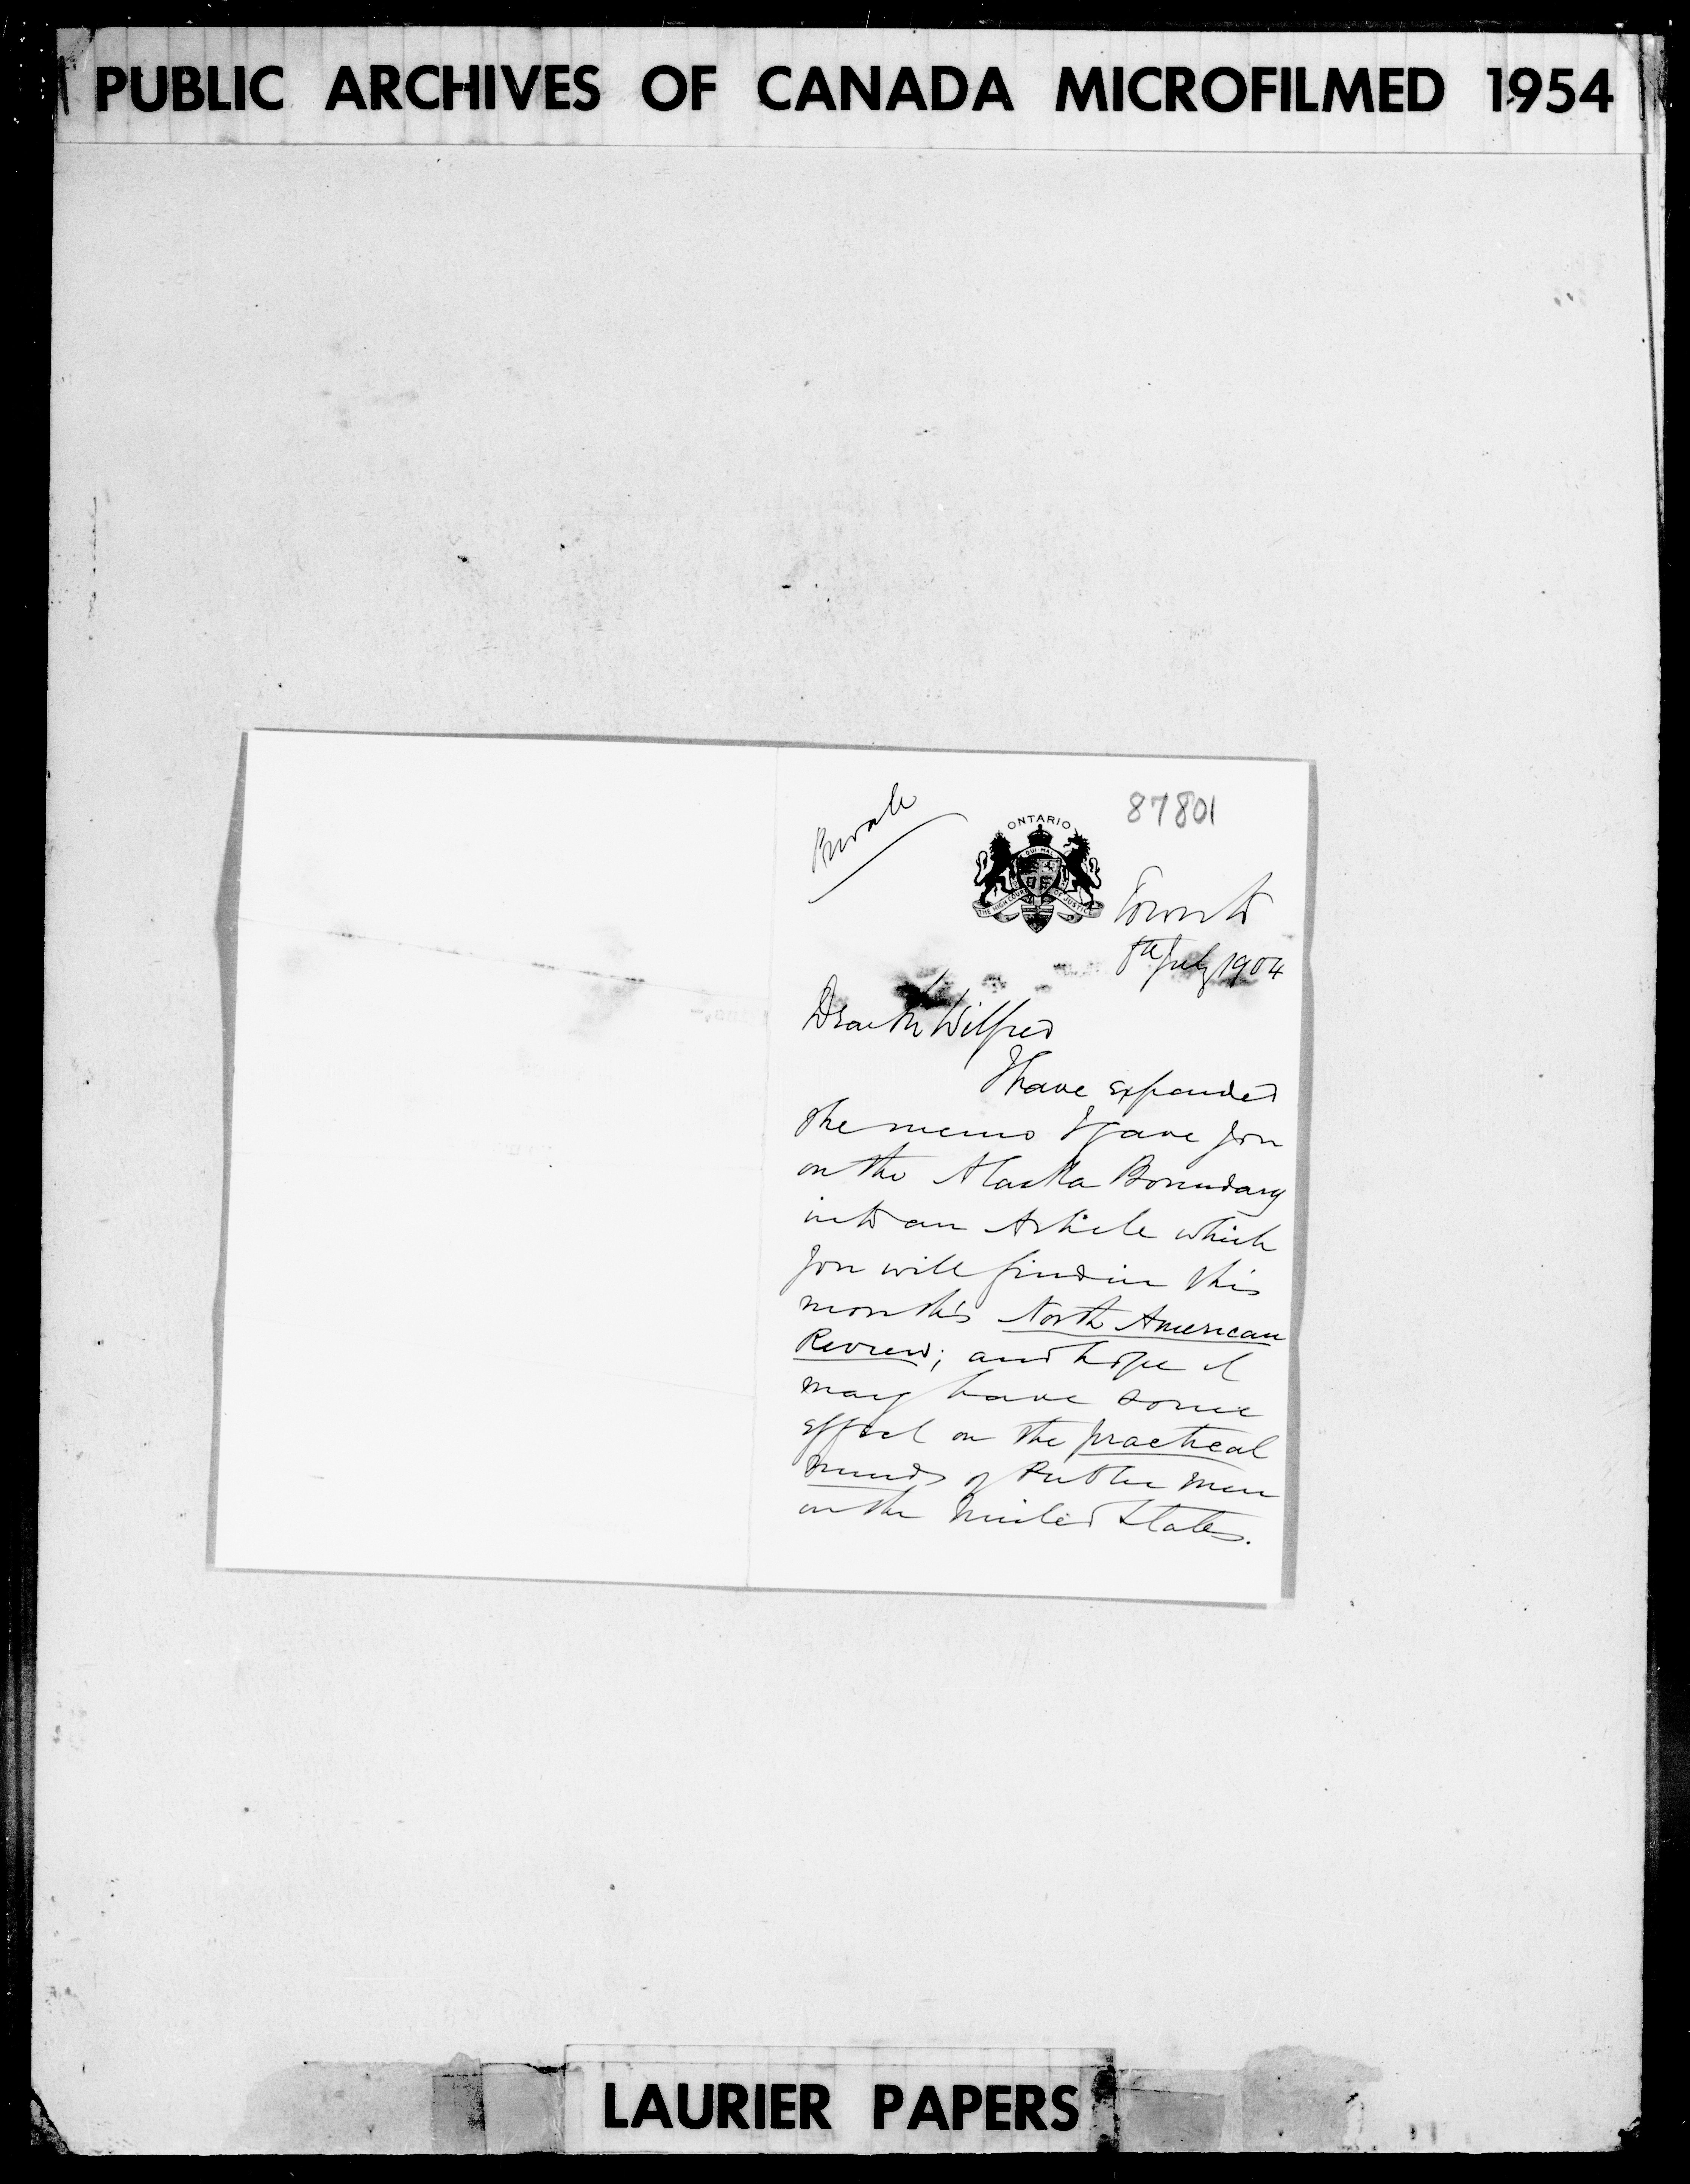 PUBLIC ARCHIVES OF CANADA MICROFILMED 1954
Private
87801
ONTARIO
QUI MAL
THE HIGH COURT OF JUSTICE
Toronto
8th July 1904
Dear Sir Wilfred
I have expanded
the memo I gave you
on the Alaska Boundary
into an Article which
you will find in this
month's North American
Review; and hope it
may have some
effect on the practical
minds of Public men
in the United States.
LAURIER PAPERS